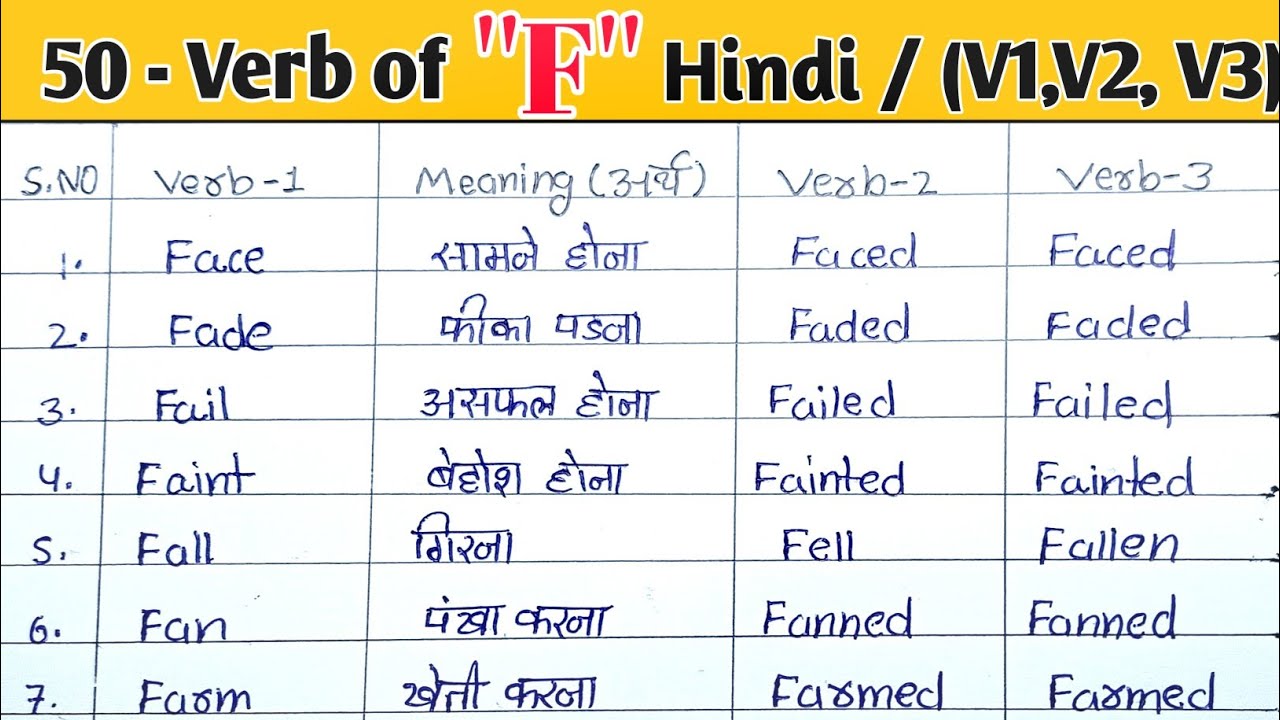 50 - Verb of "F" Hindi / (V1,V2, V3)
S.NO Verb-1 Meaning (अर्थ) Verb-2 Verb-3
1. Face सामने होना Faced Faced
2. Fade फीका पडना Faded Faded
3. Fail असफल होना Failed Failed
4. Faint बेहोश होना Fainted Fainted
5. Fall गिरना Fell Fallen
6. Fan पंखा करना Fanned Fanned
7. Farm खेती करना Farmed Farmed